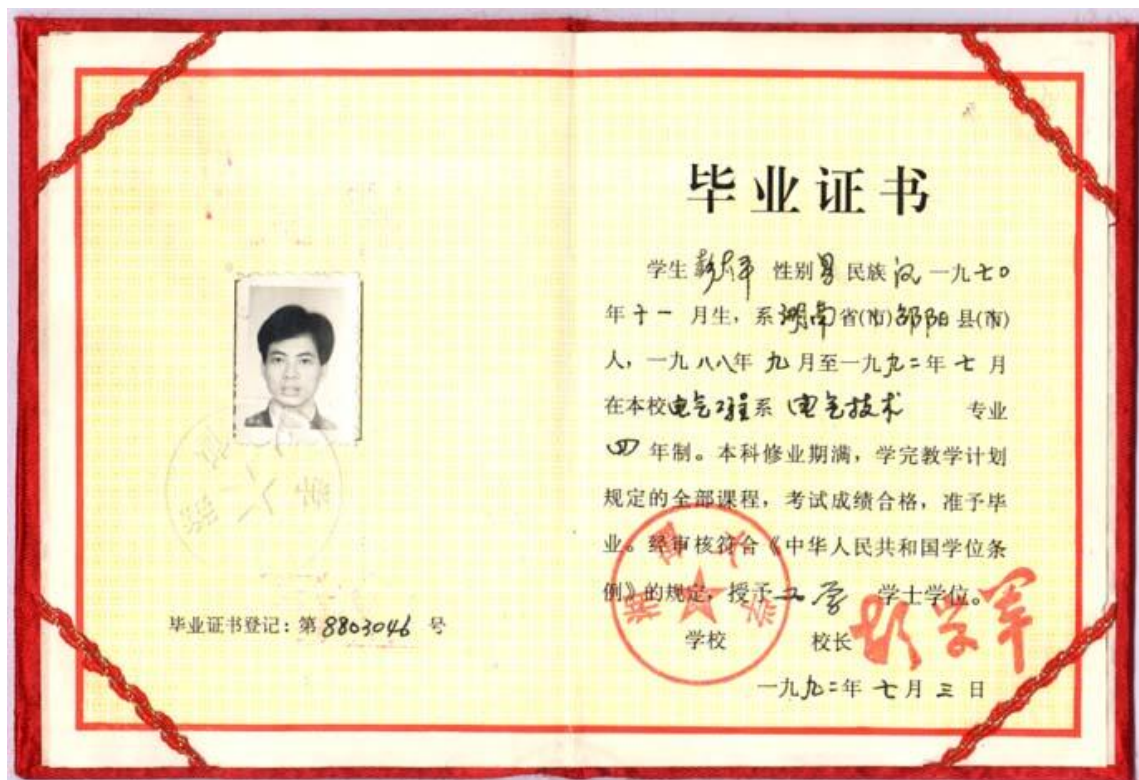 毕业证书
学生彭 性别男民族汉一九七〇
年十一月生，系湖南省(市)邵阳县(市)
人，一九八八年九月至一九九二年七月
在本校电气工程系电气技术 专业
四年制。本科修业期满，学完教学计划
规定的全部课程，考试成绩合格，准予毕
业。经审核符合《中华人民共和国学位条
例》的规定，授予工学 学士学位。
学校 校长
一九九二年七月三日
毕业证书登记：第8803046号